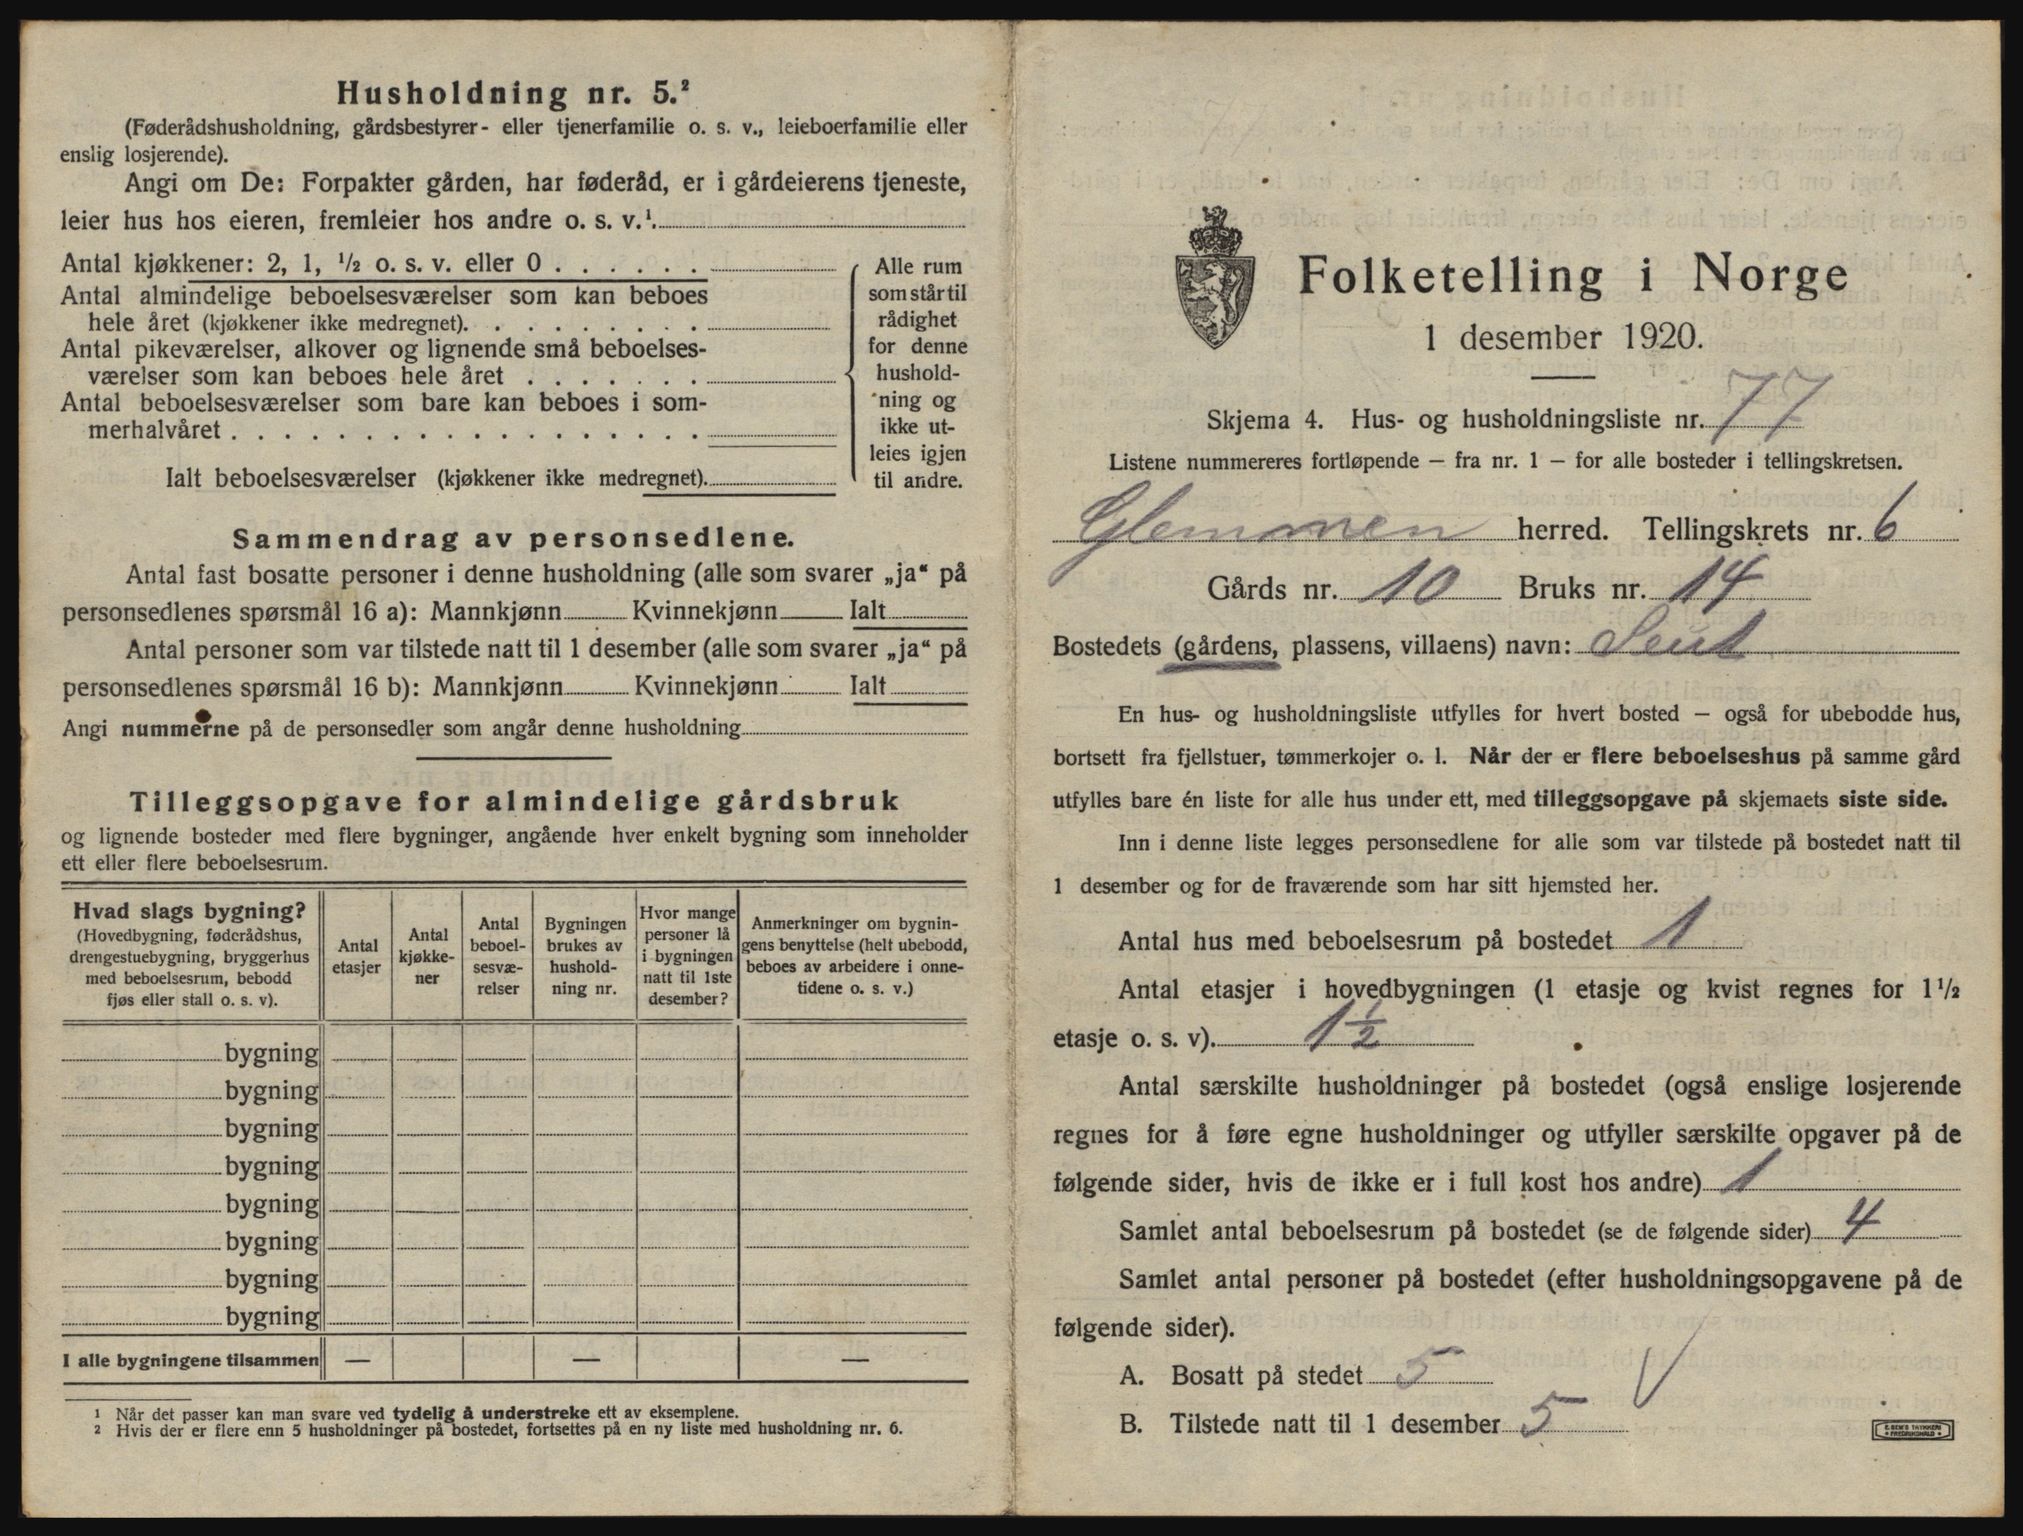 Husholdning nr. 5.²
(Føderådshusholdning, gårdsbestyrer- eller tjenerfamilie o. s. v., leieboerfamilie eller
enslig losjerende).
Angi om De: Forpakter gården, har føderåd, er i gårdeierens tjeneste,
leier hus hos eieren, fremleier hos andre o. s. v.¹.
Antal kjøkkener: 2, 1, ½ o. s. v. eller 0 . . . . . .
Antal almindelige beboelsesværelser som kan beboes
hele året (kjøkkener ikke medregnet). . . . . . . . .
Antal pikeværelser, alkover og lignende små beboelses-
værelser som kan beboes hele året . . . . . . .
Antal beboelsesværelser som bare kan beboes i som-
merhalvåret . . . . . . . . . . . . . . . . . .
Ialt beboelsesværelser (kjøkkener ikke medregnet).
Alle rum
som står til
rådighet
for denne
hushold-
ning og
ikke ut-
leies igjen
til andre.
Sammendrag av personsedlene.
Antal fast bosatte personer i denne husholdning (alle som svarer „ja“ på
personsedlenes spørsmål 16 a): Mannkjønn Kvinnekjønn Ialt
Antal personer som var tilstede natt til 1 desember (alle som svarer „ja“ på
personsedlenes spørsmål 16 b): Mannkjønn Kvinnekjønn Ialt
Angi nummerne på de personsedler som angår denne husholdning
Tilleggsopgave for almindelige gårdsbruk
og lignende bosteder med flere bygninger, angående hver enkelt bygning som inneholder
ett eller flere beboelsesrum.
Hvad slags bygning?
(Hovedbygning, føderådshus,
drengestuebygning, bryggerhus
med beboelsesrum, bebodd
fjøs eller stall o. s. v).
Antal
etasjer
Antal
kjøkke-
ner
Antal
beboel-
sesvæ-
relser
Bygningen
brukes av
hushold-
ning nr.
Hvor mange
personer lå
i bygningen
natt til 1ste
desember?
Anmerkninger om bygnin-
gens benyttelse (helt ubebodd,
beboes av arbeidere i onne-
tidene o. s. v.)
bygning
bygning
bygning
bygning
bygning
bygning
bygning
bygning
I alle bygningene tilsammen — — —
¹ Når det passer kan man svare ved tydelig å understreke ett av eksemplene.
² Hvis der er flere enn 5 husholdninger på bostedet, fortsettes på en ny liste med husholdning nr. 6.
Folketelling i Norge
1 desember 1920.
Skjema 4. Hus- og husholdningsliste nr. 77
Listene nummereres fortløpende — fra nr. 1 — for alle bosteder i tellingskretsen.
Glemmen herred. Tellingskrets nr. 6
Gårds nr. 10 Bruks nr. 14
Bostedets (gårdens, plassens, villaens) navn: Seut
En hus- og husholdningsliste utfylles for hvert bosted — også for ubebodde hus,
bortsett fra fjellstuer, tømmerkojer o. l. Når der er flere beboelseshus på samme gård
utfylles bare én liste for alle hus under ett, med tilleggsopgave på skjemaets siste side.
Inn i denne liste legges personsedlene for alle som var tilstede på bostedet natt til
1 desember og for de fraværende som har sitt hjemsted her.
Antal hus med beboelsesrum på bostedet 1
Antal etasjer i hovedbygningen (1 etasje og kvist regnes for 1½
etasje o. s. v). 1½
Antal særskilte husholdninger på bostedet (også enslige losjerende
regnes for å føre egne husholdninger og utfyller særskilte opgaver på de
følgende sider, hvis de ikke er i full kost hos andre) 1
Samlet antal beboelsesrum på bostedet (se de følgende sider) 4
Samlet antal personer på bostedet (efter husholdningsopgavene på de
følgende sider).
A. Bosatt på stedet 5
B. Tilstede natt til 1 desember 5